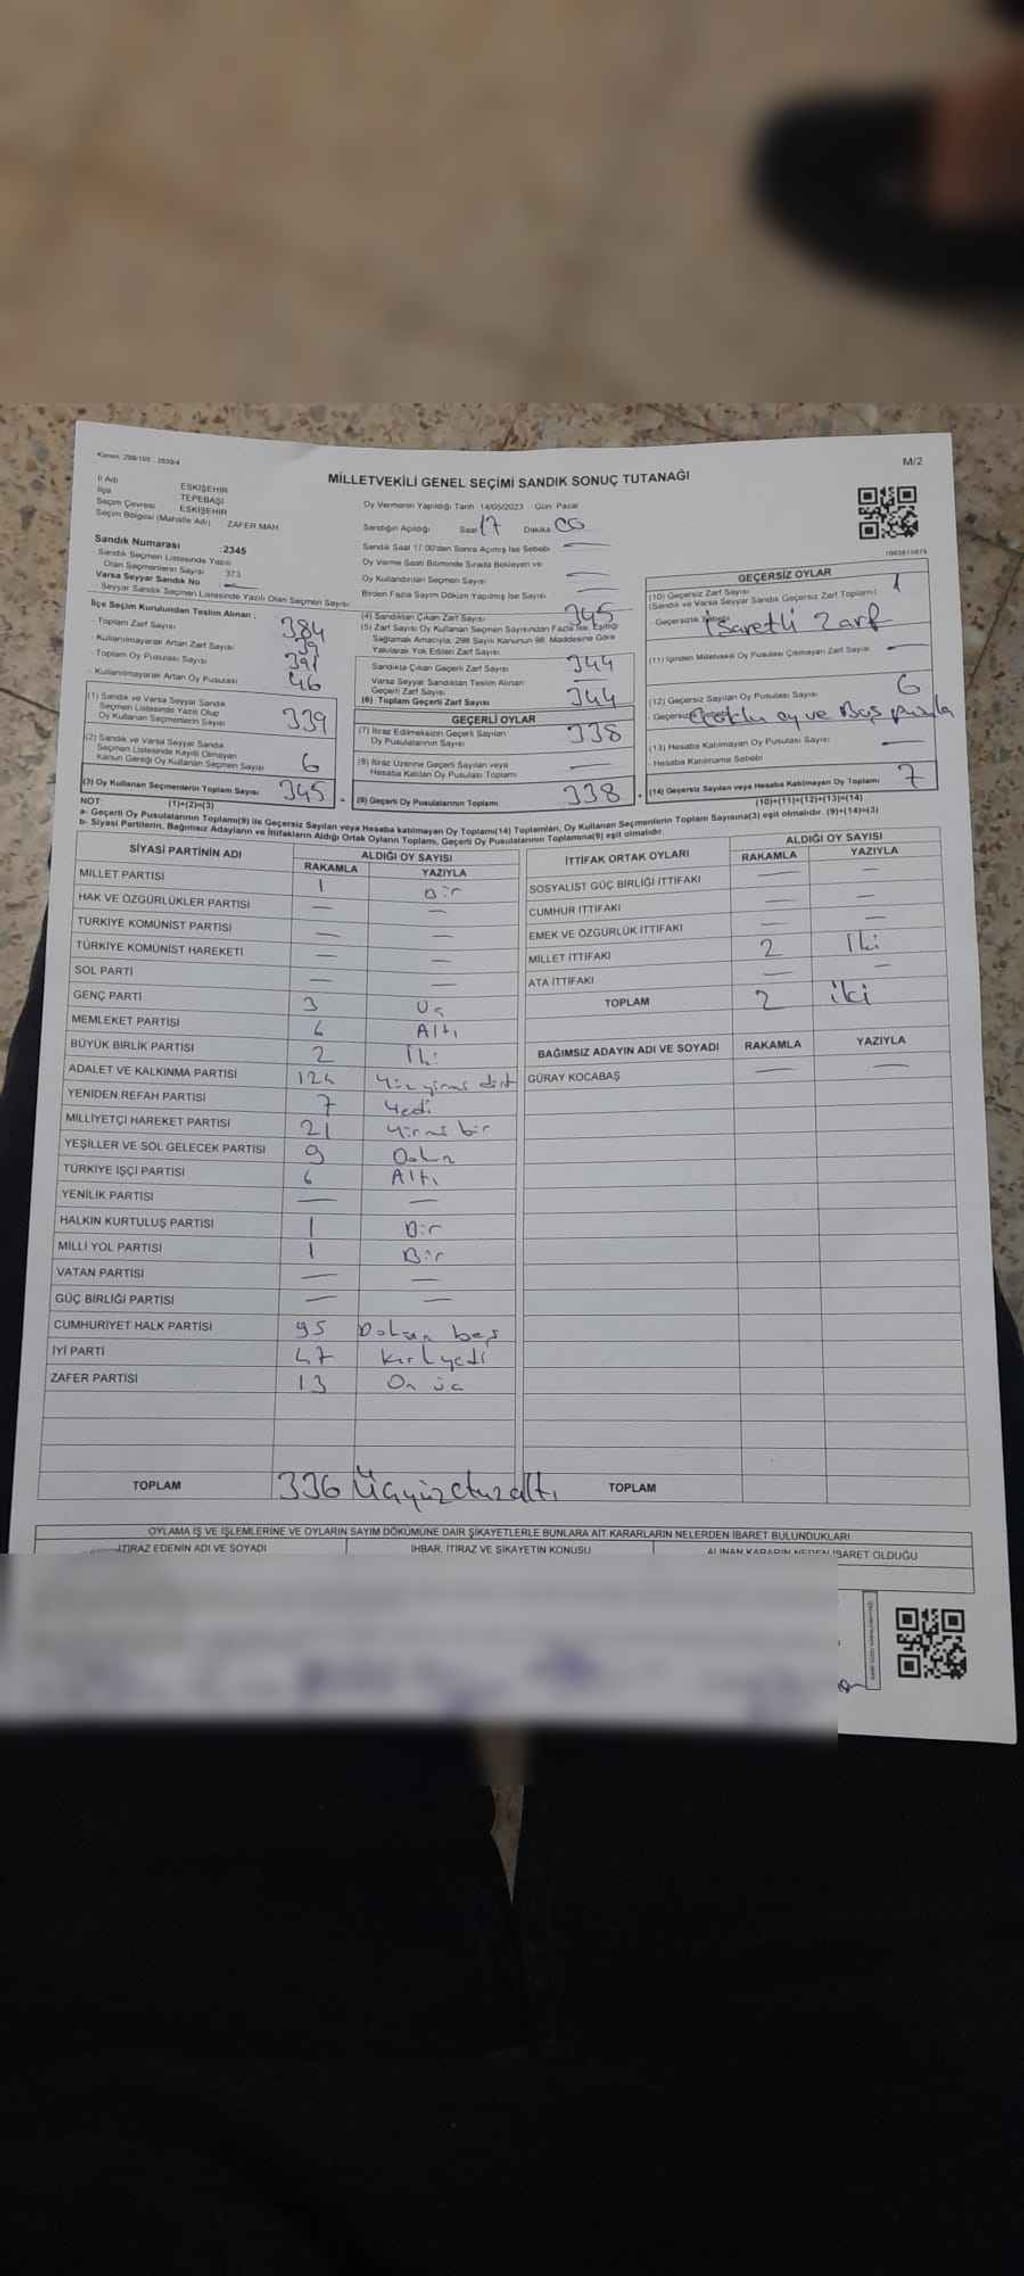 Kanun: 298/105 - 2839/4
M/2
MİLLETVEKİLİ GENEL SEÇİMİ SANDIK SONUÇ TUTANAĞI
İl Adı ESKİŞEHİR
İlçe TEPEBAŞI
Seçim Çevresi ESKİŞEHİR
Seçim Bölgesi (Mahalle Adı) ZAFER MAH
Sandık Numarası 2345
Sandık Seçmen Listesinde Yazılı
Olan Seçmenlerin Sayısı 373
Varsa Seyyar Sandık No —
Seyyar Sandık Seçmen Listesinde Yazılı Olan Seçmen Sayısı
Oy Vermenin Yapıldığı Tarih 14/05/2023 Gün Pazar
Sandığın Açıldığı Saat 17 Dakika 00
Sandık Saat 17:00'den Sonra Açılmış İse Sebebi —
Oy Verme Saati Bitiminde Sırada Bekleyen ve
Oy Kullandırılan Seçmen Sayısı —
Birden Fazla Sayım Döküm Yapılmış İse Sayısı —
İlçe Seçim Kurulundan Teslim Alınan :
Toplam Zarf Sayısı 384
Kullanılmayarak Artan Zarf Sayısı 39
Toplam Oy Pusulası Sayısı 391
Kullanılmayarak Artan Oy Pusulası 46
(1) Sandık ve Varsa Seyyar Sandık
Seçmen Listesinde Yazılı Olup
Oy Kullanan Seçmenlerin Sayısı 339
(2) Sandık ve Varsa Seyyar Sandık
Seçmen Listesinde Kayıtlı Olmayan
Kanun Gereği Oy Kullanan Seçmen Sayısı 6
(3) Oy Kullanan Seçmenlerin Toplam Sayısı 345
(4) Sandıktan Çıkan Zarf Sayısı 345
(5) Zarf Sayısı Oy Kullanan Seçmen Sayısından Fazla İse, Eşitliği
Sağlamak Amacıyla, 298 Sayılı Kanunun 98. Maddesine Göre
Yakılarak Yok Edilen Zarf Sayısı —
Sandıkta Çıkan Geçerli Zarf Sayısı 344
Varsa Seyyar Sandıktan Teslim Alınan
Geçerli Zarf Sayısı —
(6) Toplam Geçerli Zarf Sayısı 344
GEÇERLİ OYLAR
(7) İtiraz Edilmeksizin Geçerli Sayılan
Oy Pusulalarının Sayısı 338
(8) İtiraz Üzerine Geçerli Sayılan veya
Hesaba Katılan Oy Pusulası Toplamı —
(9) Geçerli Oy Pusulalarının Toplamı 338
GEÇERSİZ OYLAR
(10) Geçersiz Zarf Sayısı 1
(Sandık ve Varsa Seyyar Sandık Geçersiz Zarf Toplamı)
Geçersizlik Sebebi İşaretli Zarf
(11) İçinden Milletvekili Oy Pusulası Çıkmayan Zarf Sayısı —
(12) Geçersiz Sayılan Oy Pusulası Sayısı 6
Çoklu oy ve Boş pusula
(13) Hesaba Katılmayan Oy Pusulası Sayısı —
Hesaba Katılmama Sebebi
(14) Geçersiz Sayılan veya Hesaba Katılmayan Oy Toplamı 7
NOT (1)+(2)=(3) (10)+(11)+(12)+(13)=(14)
a- Geçerli Oy Pusulalarının Toplamı(9) ile Geçersiz Sayılan veya Hesaba katılmayan Oy Toplamı(14) Toplamları, Oy Kullanan Seçmenlerin Toplam Sayısına(3) eşit olmalıdır. (9)+(14)=(3)
b- Siyasi Partilerin, Bağımsız Adayların ve İttifakların Aldığı Ortak Oyların Toplamı, Geçerli Oy Pusulalarının Toplamına(9) eşit olmalıdır.
SİYASİ PARTİNİN ADI ALDIĞI OY SAYISI
RAKAMLA YAZIYLA
MİLLET PARTİSİ 1 Bir
HAK VE ÖZGÜRLÜKLER PARTİSİ — —
TÜRKİYE KOMÜNİST PARTİSİ — —
TÜRKİYE KOMÜNİST HAREKETİ — —
SOL PARTİ — —
GENÇ PARTİ 3 Üç
MEMLEKET PARTİSİ 6 Altı
BÜYÜK BİRLİK PARTİSİ 2 İki
ADALET VE KALKINMA PARTİSİ 124 Yüz yirmi dört
YENİDEN REFAH PARTİSİ 7 Yedi
MİLLİYETÇİ HAREKET PARTİSİ 21 Yirmi bir
YEŞİLLER VE SOL GELECEK PARTİSİ 9 Dokuz
TÜRKİYE İŞÇİ PARTİSİ 6 Altı
YENİLİK PARTİSİ — —
HALKIN KURTULUŞ PARTİSİ 1 Bir
MİLLİ YOL PARTİSİ 1 Bir
VATAN PARTİSİ — —
GÜÇ BİRLİĞİ PARTİSİ — —
CUMHURİYET HALK PARTİSİ 95 Doksan beş
İYİ PARTİ 47 Kırk yedi
ZAFER PARTİSİ 13 On üç
TOPLAM 336 Üçyüzotuzaltı
İTTİFAK ORTAK OYLARI ALDIĞI OY SAYISI
RAKAMLA YAZIYLA
SOSYALİST GÜÇ BİRLİĞİ İTTİFAKI — —
CUMHUR İTTİFAKI — —
EMEK VE ÖZGÜRLÜK İTTİFAKI — —
MİLLET İTTİFAKI 2 İki
ATA İTTİFAKI — —
TOPLAM 2 iki
BAĞIMSIZ ADAYIN ADI VE SOYADI RAKAMLA YAZIYLA
GÜRAY KOCABAŞ — —
TOPLAM
OYLAMA İŞ VE İŞLEMLERİNE VE OYLARIN SAYIM DÖKÜMÜNE DAİR ŞİKAYETLERLE BUNLARA AİT KARARLARIN NELERDEN İBARET BULUNDUKLARI
İTİRAZ EDENİN ADI VE SOYADI İHBAR, İTİRAZ VE ŞİKAYETİN KONUSU ALINAN KARARIN NEDEN İBARET OLDUĞU